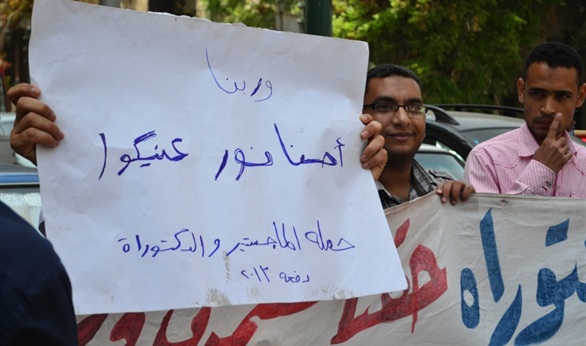 وربنا
أحنا نور عنيكوا
حمله الماجستير والدكتوراة
دفعه ٢٠١٣
توراه حقنا